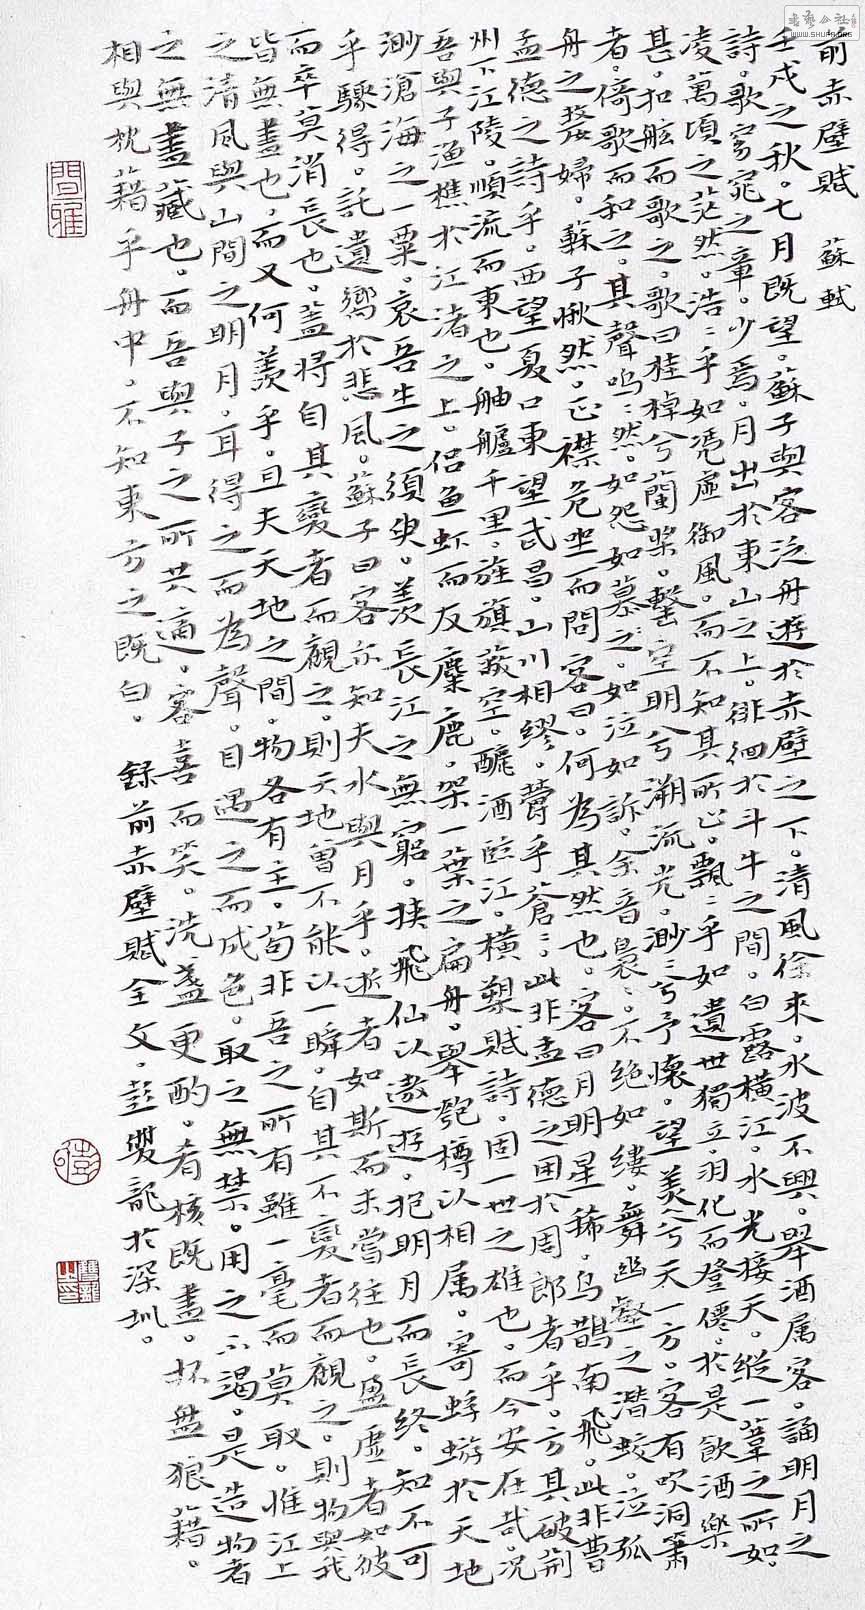 前赤壁賦　蘇軾
壬戌之秋。七月既望。蘇子與客泛舟遊於赤壁之下。清風徐來。水波不興。舉酒属客。誦明月之
詩。歌窈窕之章。少焉。月出於東山之上。徘徊於斗牛之間。白露橫江。水光接天。縱一葦之所如。
凌萬頃之茫然。浩〻乎如馮虛御風。而不知其所止。飄〻乎如遺世獨立。羽化而登僊。於是飲酒樂
甚。扣舷而歌之。歌曰桂棹兮蘭槳。擊空明兮溯流光。渺〻兮予懷。望美人兮天一方。客有吹洞簫
者。倚歌而和之。其聲嗚〻然。如怨如慕。如泣如訴。余音裊〻。不绝如缕。舞幽壑之潛蛟。泣孤
舟之嫠婦。蘇子愀然。正襟危坐而問客曰。何為其然也。客曰月明星稀。烏鵲南飛。此非曹
孟德之詩乎。西望夏口東望武昌。山川相繆。鬱乎蒼〻。此非孟德之困於周郎者乎。方其破荆
州下江陵。順流而東也。舳艫千里。旌旗蔽空。釃酒臨江。橫槊賦詩。固一世之雄也。而今安在哉。況
吾與子漁樵於江渚之上。侣鱼虾而友麋鹿。架一葉之扁舟。舉匏樽以相属。寄蜉蝣於天地
渺滄海之一粟。哀吾生之須臾。羨長江之無窮。挟飛仙以遨遊。抱明月而長終。知不可
乎驟得。託遺響於悲風。蘇子曰客亦知夫水與月乎。逝者如斯而未嘗往也。盈虛者如彼
而卒莫消長也。蓋將自其變者而觀之。則天地曾不能以一瞬。自其不變者而觀之。則物與我
皆無盡也。而又何羨乎。且夫天地之間。物各有主。苟非吾之所有雖一毫而莫取。惟江上
之清風與山間之明月。耳得之而為聲。目遇之而成色。取之無禁。用之不竭。是造物者
之無盡藏也。而吾與子之所共適。客喜而笑。洗盞更酌。肴核既盡。杯盤狼籍。
相與枕藉乎舟中。不知東方之既白。　錄前赤壁賦全文。彭雙龍於深圳。
彭
WWW.SHUFA.ORG